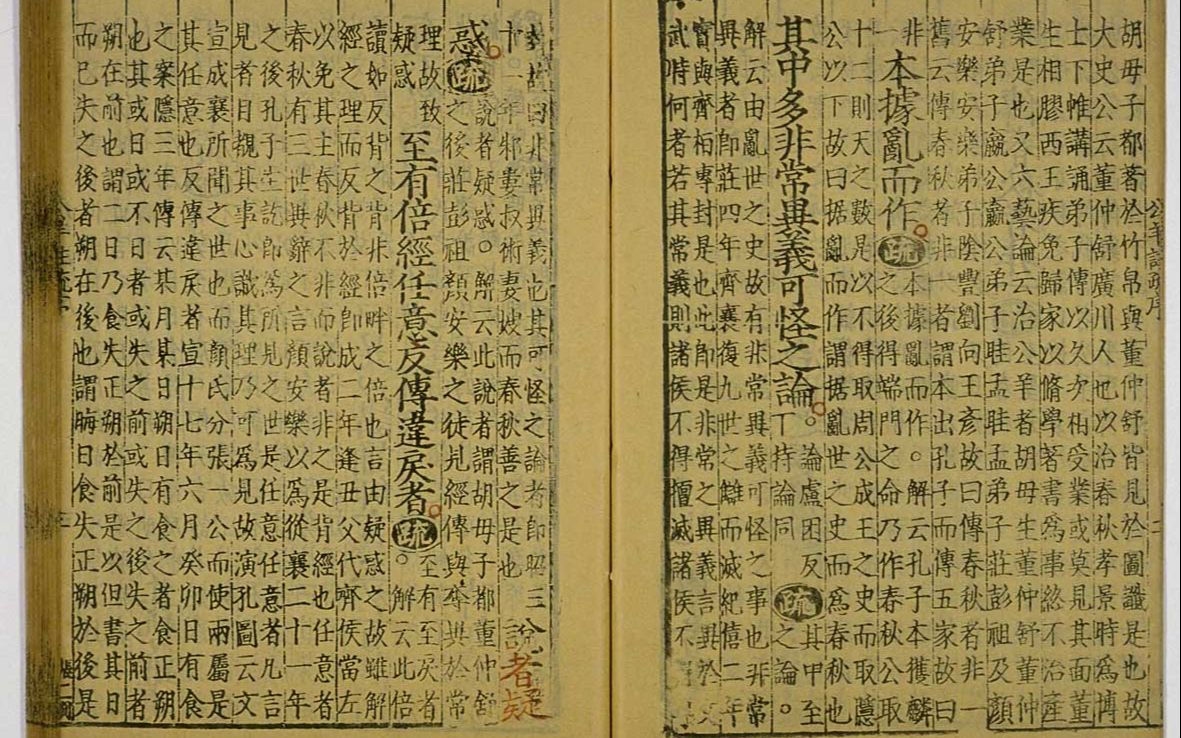 胡毋子都著於竹帛與董仲舒皆見於圖讖是也故
大史公云董仲舒廣川人也以治春秋孝景時爲博
士下帷講誦弟子傳以久次相受業或莫見其面董
生相膠西王疾免歸家以脩學著書爲事終不治產
業是也又六藝論云治公羊者胡毋生董仲舒董仲
舒弟子嬴公嬴公弟子眭孟眭孟弟子莊彭祖及顏
安樂安樂弟子陰豐劉向王彥故曰傳春秋者非一
舊云傳春秋者非一者謂本出孔子而傳五家故曰
非一本據亂而作。疏本據亂而作。解云孔子本獲麟
之後得端門之命乃作春秋公取
十二則天之數是以不得取周公成王之史而取隱
公以下故曰据亂而作謂据亂世之史而爲春秋也
其中多非常異義可怪之論。論盧困反丁持論同疏其中至之論。
解云由亂世之史故有非常異義可怪之事也非常
異義者即莊四年齊襄復九世之讎而滅紀僖二年
實與齊栢專封是也此即是非常之異義言異於文
武時何者若其常義則諸侯不得擅滅諸侯不
故曰非常異義也其可怪之論者即昭三
十一年邾婁叔術妻嫂而春秋善之是也說者疑
惑。疏說者疑惑。解云此說者謂胡毋子都董仲舒
之後莊彭祖顏安樂之徒見經傳與奪異於常
理故致疑惑至有倍經任意反傳違戾者。疏至有至戾者。解云此倍
讀如反背之背非倍畔之倍也言由疑惑之故雖解
經之理而反背於經即成二年逢丑父代齊侯當左
以免其主春秋不非而說者非之是背經也任意者
春秋有三世異辭之言顏安樂以爲從襄二十一年
之後孔子生訖即爲所見之世是任意任意者凡言
見者目覩其事心識其理乃可爲見故演孔圖云文
宣成襄所聞之世也而顏氏分張一公而使兩屬是
其任意也反傳違戾者宣十七年六月癸卯日有食
之案隱三年傳云某月某日朔日有食之者食正朔
也其或日或不日者或失之前或失之後失之前者
朔在前也謂二日乃食失正朔於前是以但書其日
而已失之後者朔在後也謂晦日食失正朔於後是